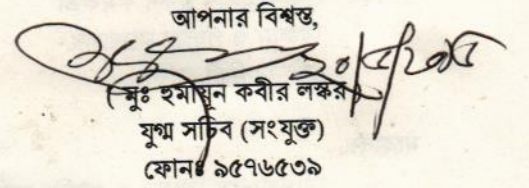 আপনার বিশ্বস্ত,
২০/৫/২০১৫
(মুঃ হুমায়ুন কবীর লস্কর)
যুগ্ম সচিব (সংযুক্ত)
ফোনঃ ৯৫৭৬৫৩৯